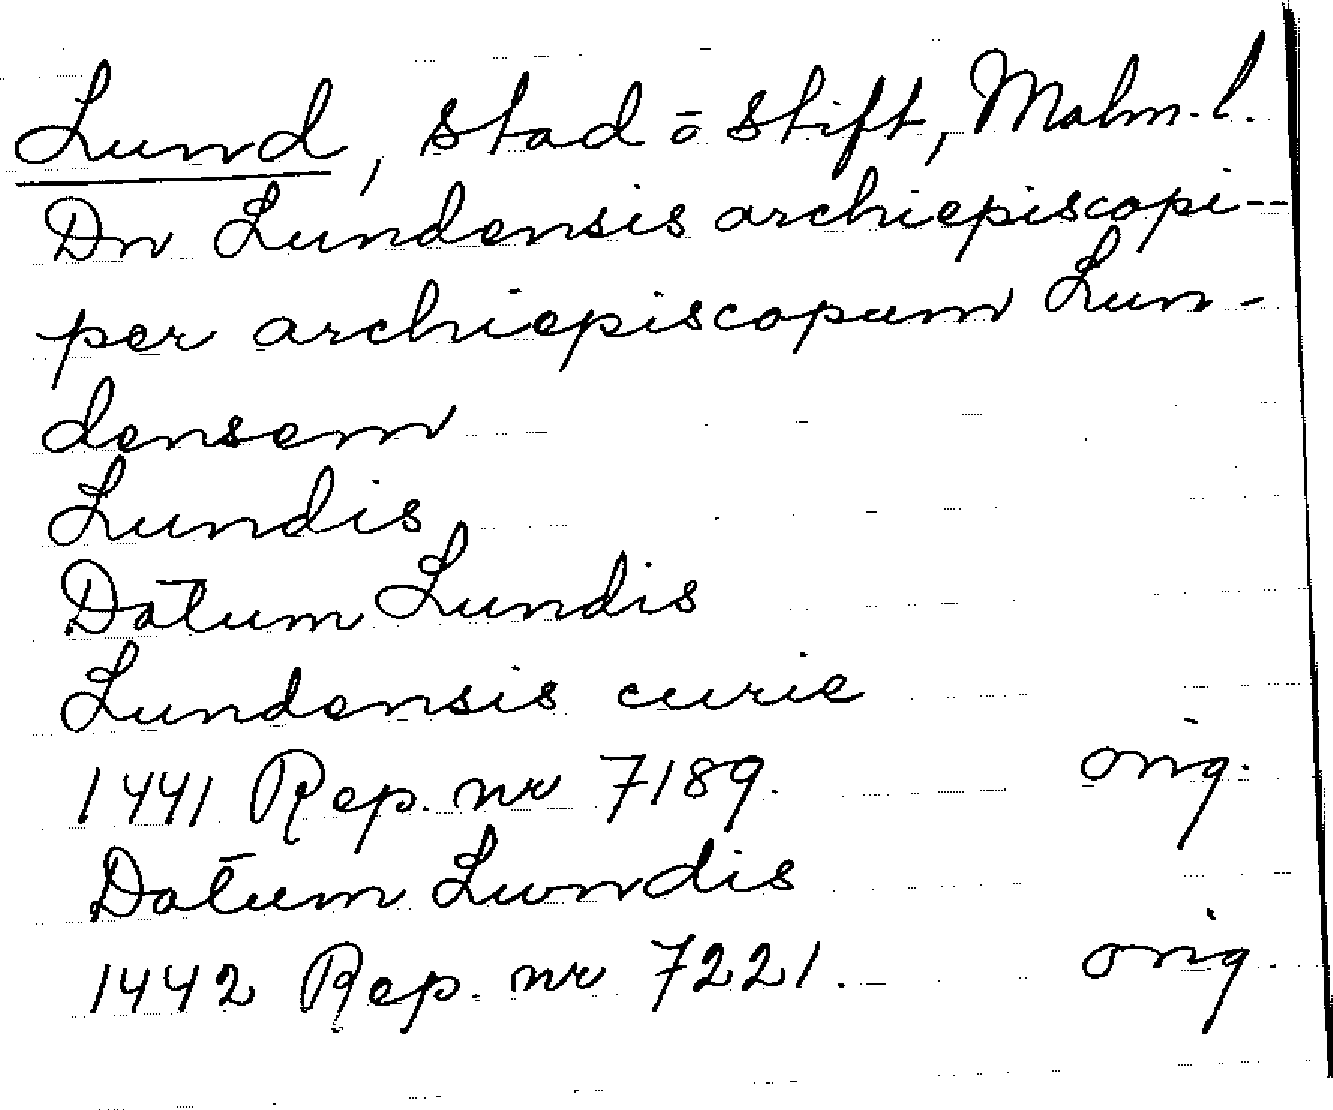 Lund, stad o stift, Malm. l.
Dn Lundensis archiepiscopi--
per archiepiscopum Lun-
densem
Lundis
Datum Lundis
Lundensis curie
1441 Rep. nr 7189. orig.
Datum Lundis
1442 Rep. nr 7221. orig.